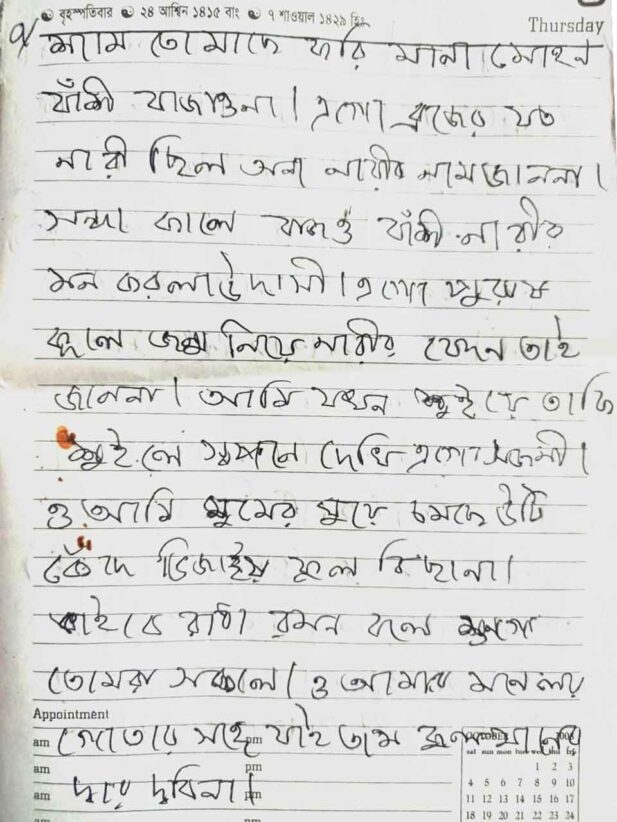 বৃহস্পতিবার ২৪ আশ্বিন ১৪১৫ বাং ৭ শাওয়াল ১৪২৯ হিঃ
Thursday
শ্যাম তোমাদে করি মানা মোহন
বাঁশী বাজাওনা। এগো ব্রজের যত
নারী ছিল অন্য নারীর নামজাননা।
সন্দা কালে বাজাও বাঁশী নারীর
মন করলাউদাসী। এগো পুরুষ
কুলে জন্ম নিয়ে নারীর বেদন তাই
জাননা। আমি যখন শুইয়ে তাকি
শুইলে সপনে দেখি এগো সজনী।
ও আমি ঘুমের ঘুরে চমকে উটি
কেঁদে ভিজাই ফুল বিছানা।
ভাইবে রাধা রমন বলে শুনগো
তোমরা সকলে। ও আমার মনে লয়
Appointment
am গোতার সঙ্গে pm যাইতাম
am pm
am pm
OCTOBER
sat sun mon tue wed thu fri
1 2 3
4 5 6 7 8 9 10
11 12 13 14 15 16 17
18 19 20 21 22 23 24